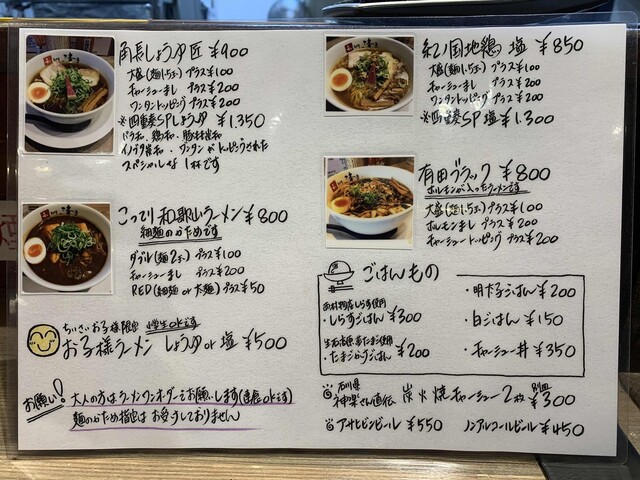 角長しょうゆ匠 ¥900
大盛(麺1.5玉)プラス¥100
チャーシューまし プラス¥200
ワンタントッピング プラス¥200
※四重奏SPしょうゆ ¥1,350
バラ和、鶏和、豚材岩和
イノブタ岩和・ワンタンがトッピングされた
スペシャルな1杯です
こってり和歌山ラーメン ¥800
細麺のかためです
ダブル(麺2玉)プラス¥100
チャーシューまし プラス¥200
RED(細麺 or 太麺)プラス¥50
ちいさいお子様限定 小学生okです
お子様ラーメン しょうゆor塩 ¥500
お願い!
大人の方はラーメンワンオーダーでお願いします(連食okです)
麺のかため指定はお受けしておりません
紀ノ国地鶏 塩 ¥850
大盛(麺1.5玉)プラス¥100
チャーシューまし プラス¥200
ワンタントッピング プラス¥200
※四重奏SP塩 ¥1,300
有田ブラック ¥800
ホルモンが入ったラーメンです
大盛(麺1.5玉)プラス¥100
ホルモンまし プラス¥200
チャーシュートッピング プラス¥200
ごはんもの
しらす使用
・しらすごはん ¥300
使用
・たまごかけごはん ¥200
・明太子ごはん ¥200
・白ごはん ¥150
・チャーシュー丼 ¥350
石川県
神楽さん直伝 炭火焼チャーシュー2枚 別皿 ¥300
アサヒビンビール ¥550
ノンアルコールビール ¥450